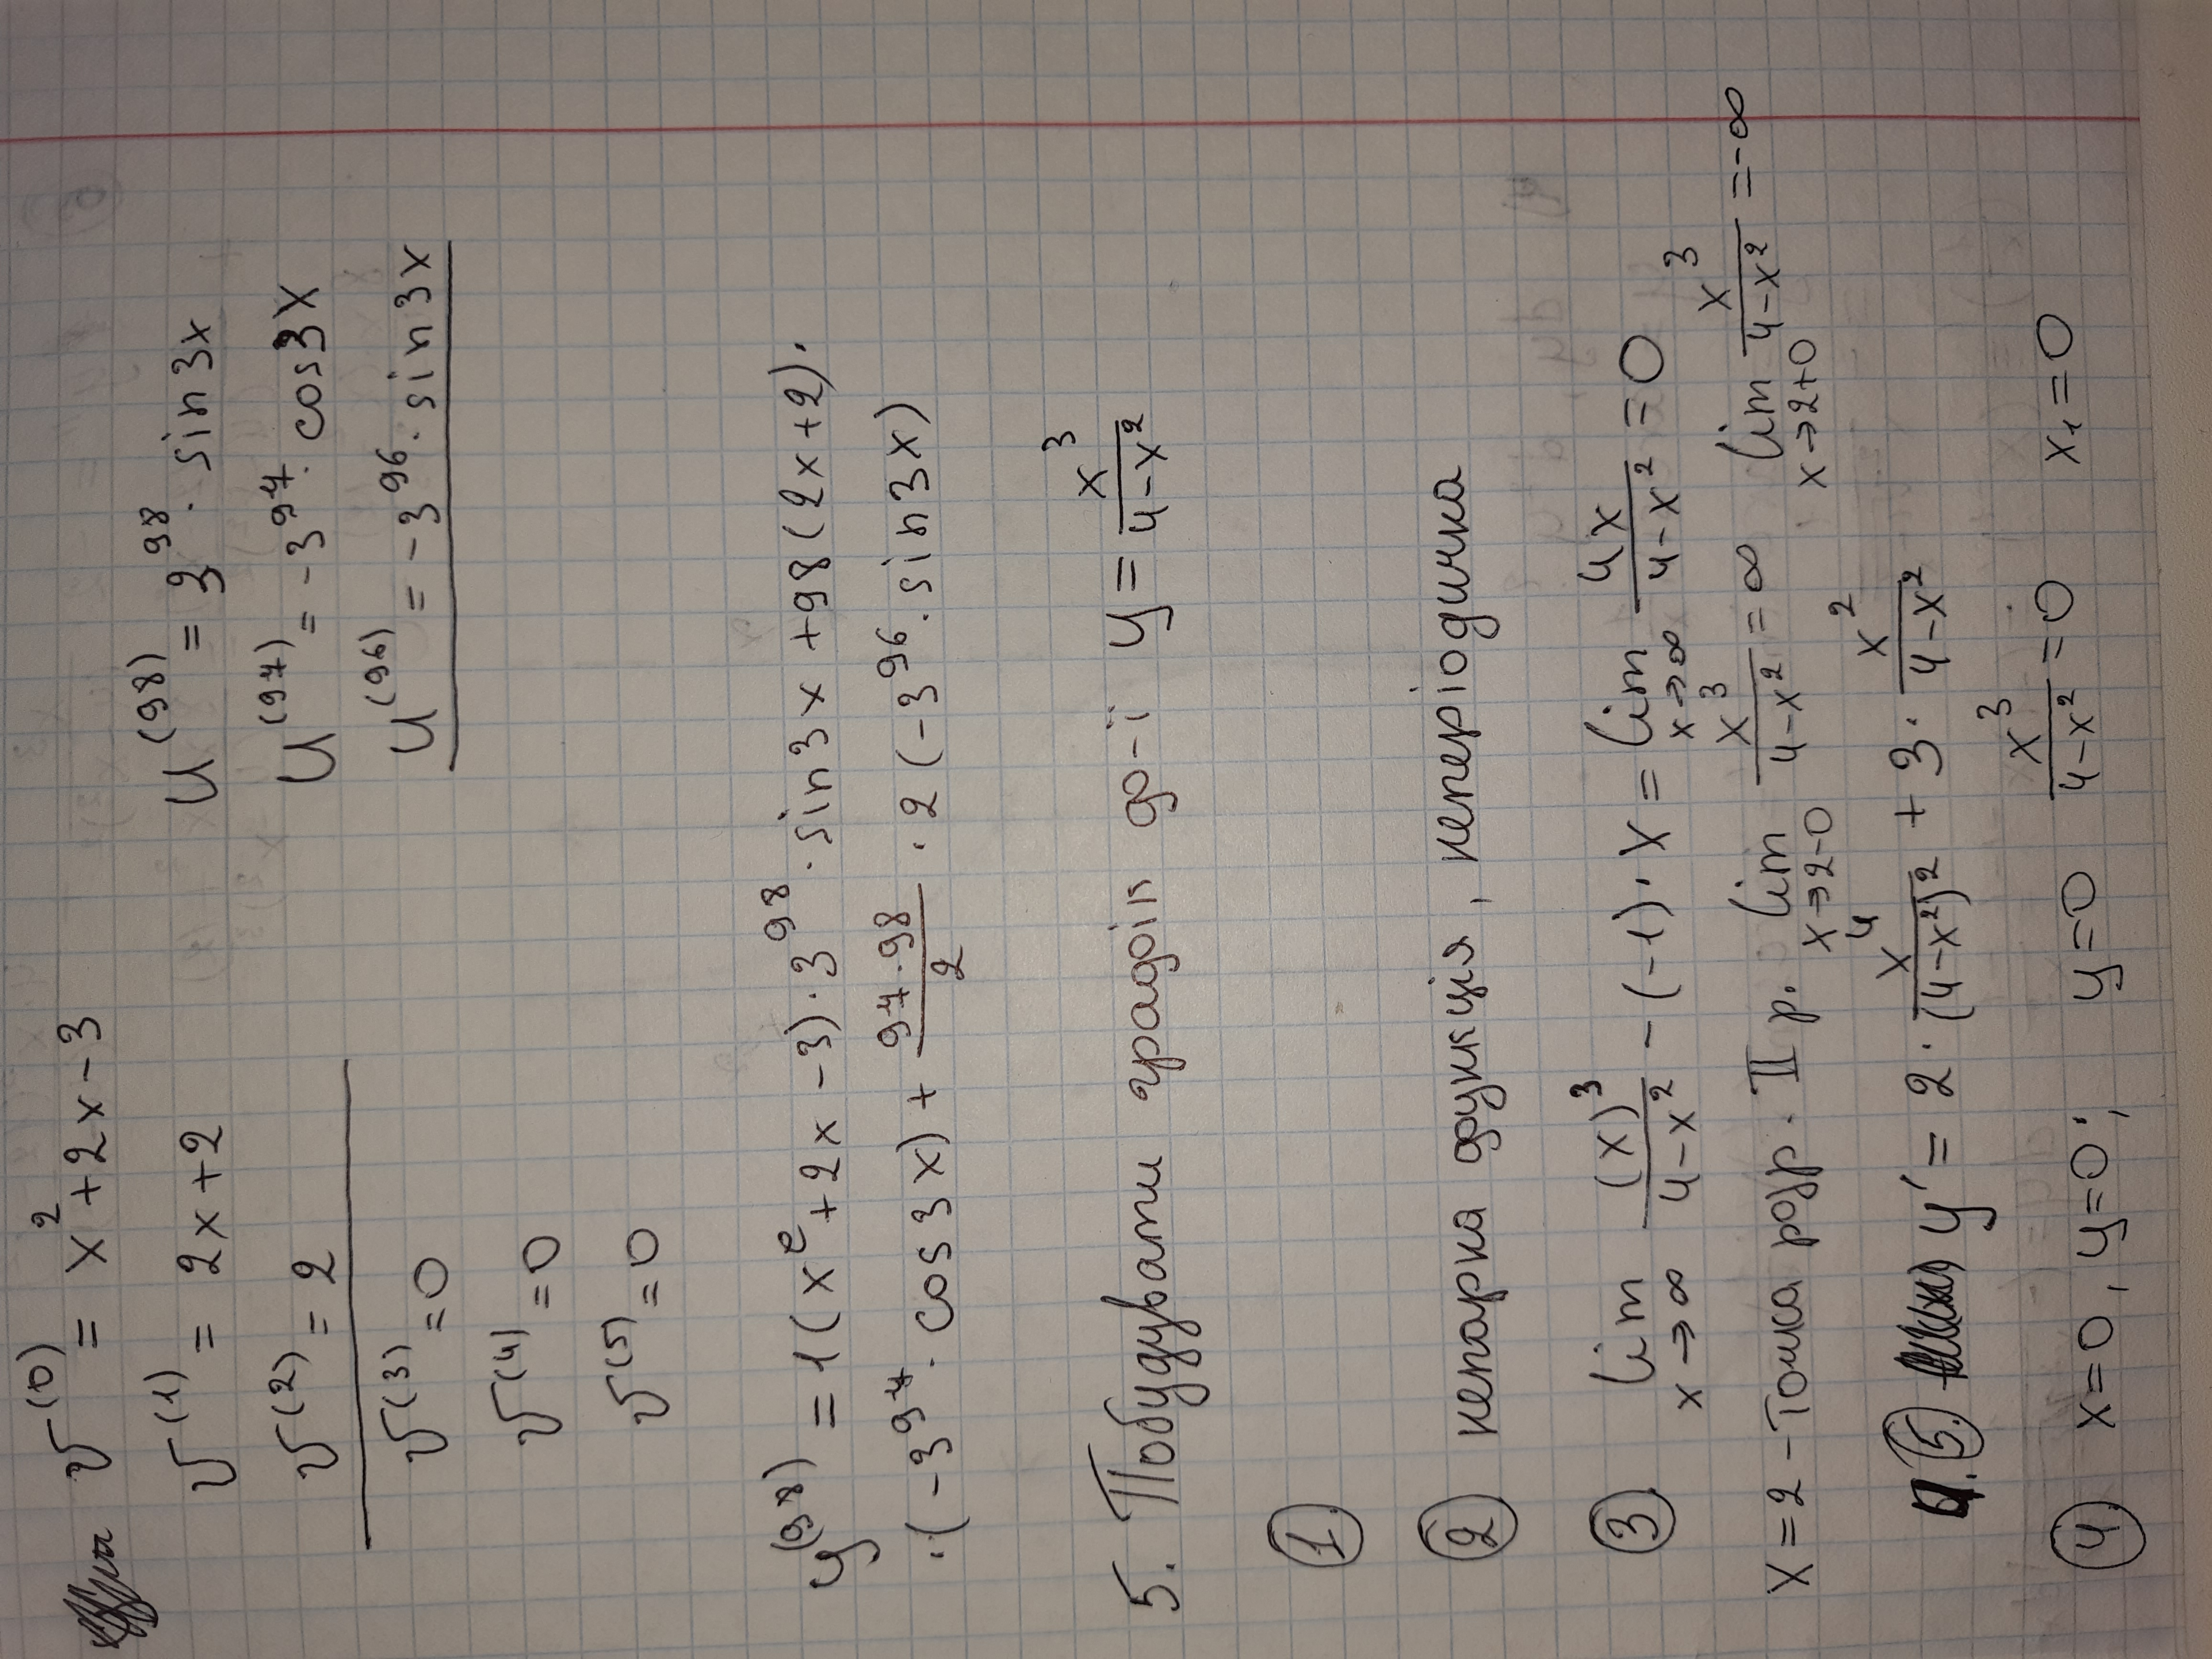 υ^(0) = x^2 + 2x - 3
υ^(1) = 2x + 2
υ^(2) = 2
υ^(3) = 0
υ^(4) = 0
υ^(5) = 0
U^(98) = 3^98 · sin3x
U^(97) = -3^97 · cos3x
U^(96) = -3^96 · sin3x
y^(98) = 1(x^2 + 2x - 3) · 3^98 · sin3x + 98(2x + 2) ·
· (-3^97 · cos3x) + (97 · 98)/2 · 2(-3^96 · sin3x)
5. Побудувати графік ф-ії y = x^3/(4-x^2)
1.
2 непарна функція, неперіодична
3. lim x→∞ (x)^3/(4-x^2) - (-1) · x = lim x→∞ 4x/(4-x^2) = 0
x = 2 - точка розр. II р. lim x→2-0 x^3/(4-x^2) = ∞ lim x→2+0 x^3/(4-x^2) = -∞
5. y' = 2 · x^4/(4-x^2)^2 + 3 · x^2/(4-x^2)
4. x = 0, y = 0; y = 0 x^3/(4-x^2) = 0 x₁ = 0